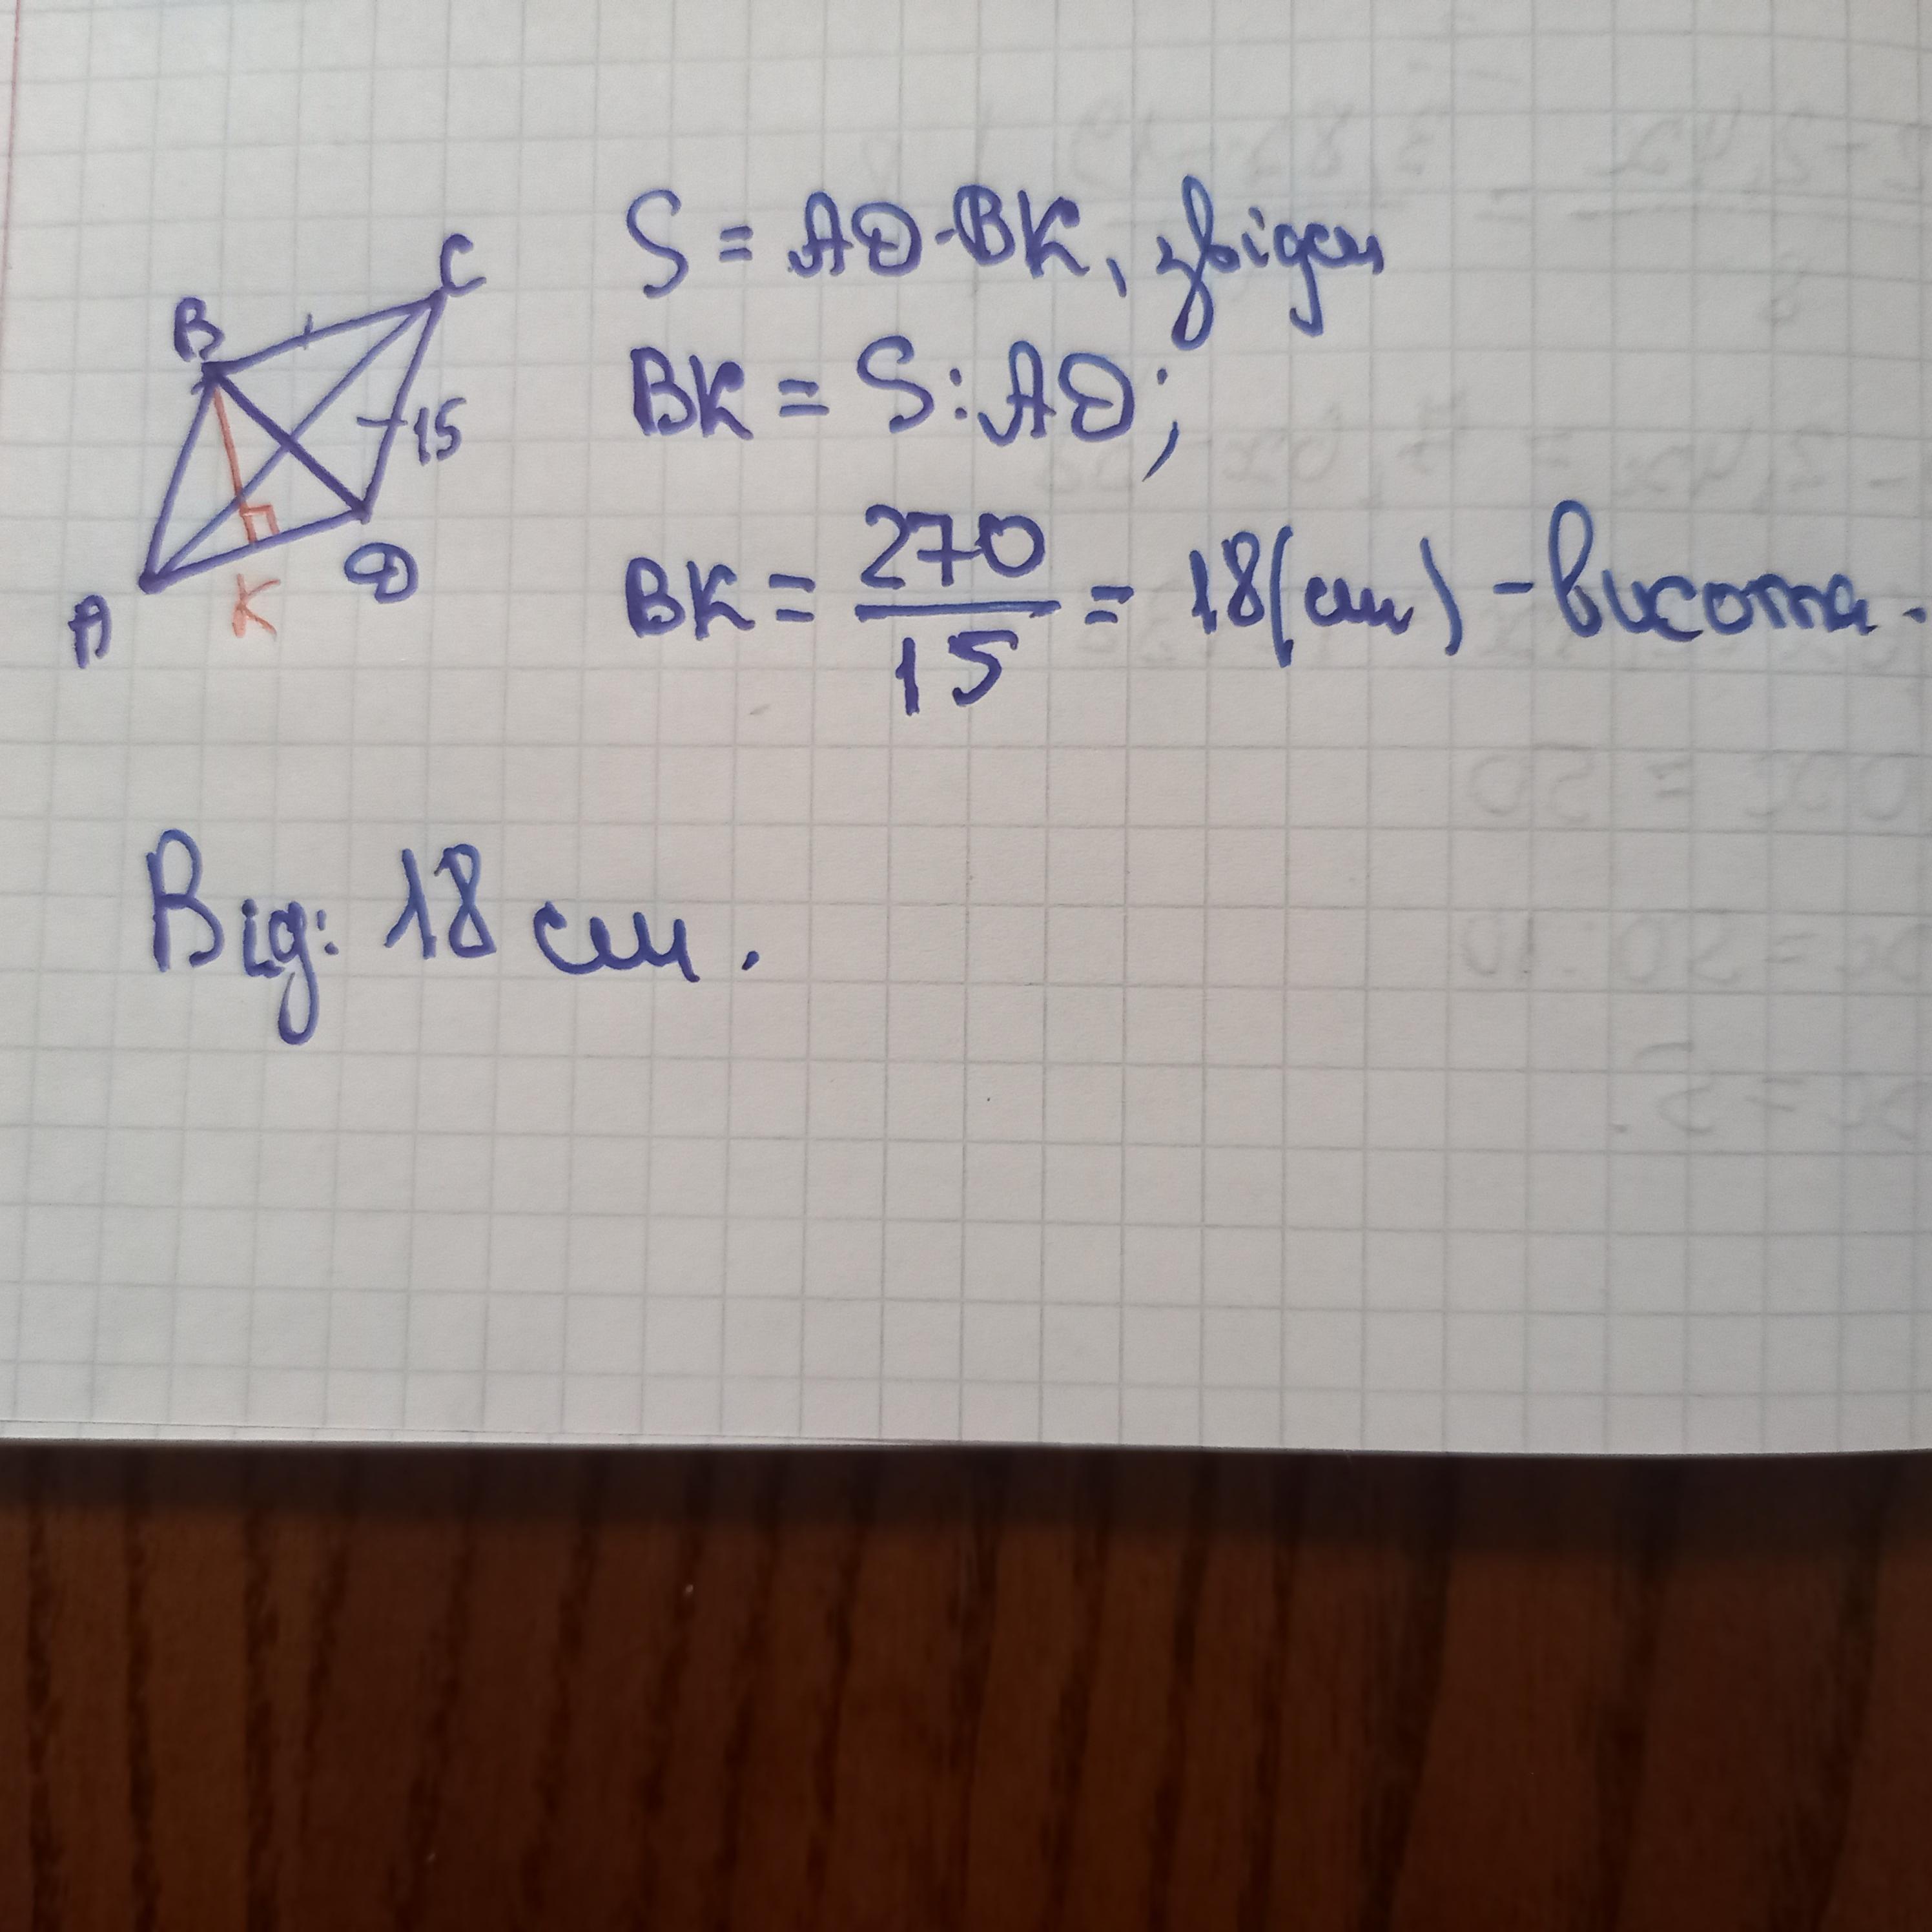 S = AD·BK, звідси
BK = S:AD;
BK = 270/15 = 18(см) - висота.
B
C
15
A
K
D
Від: 18 см.